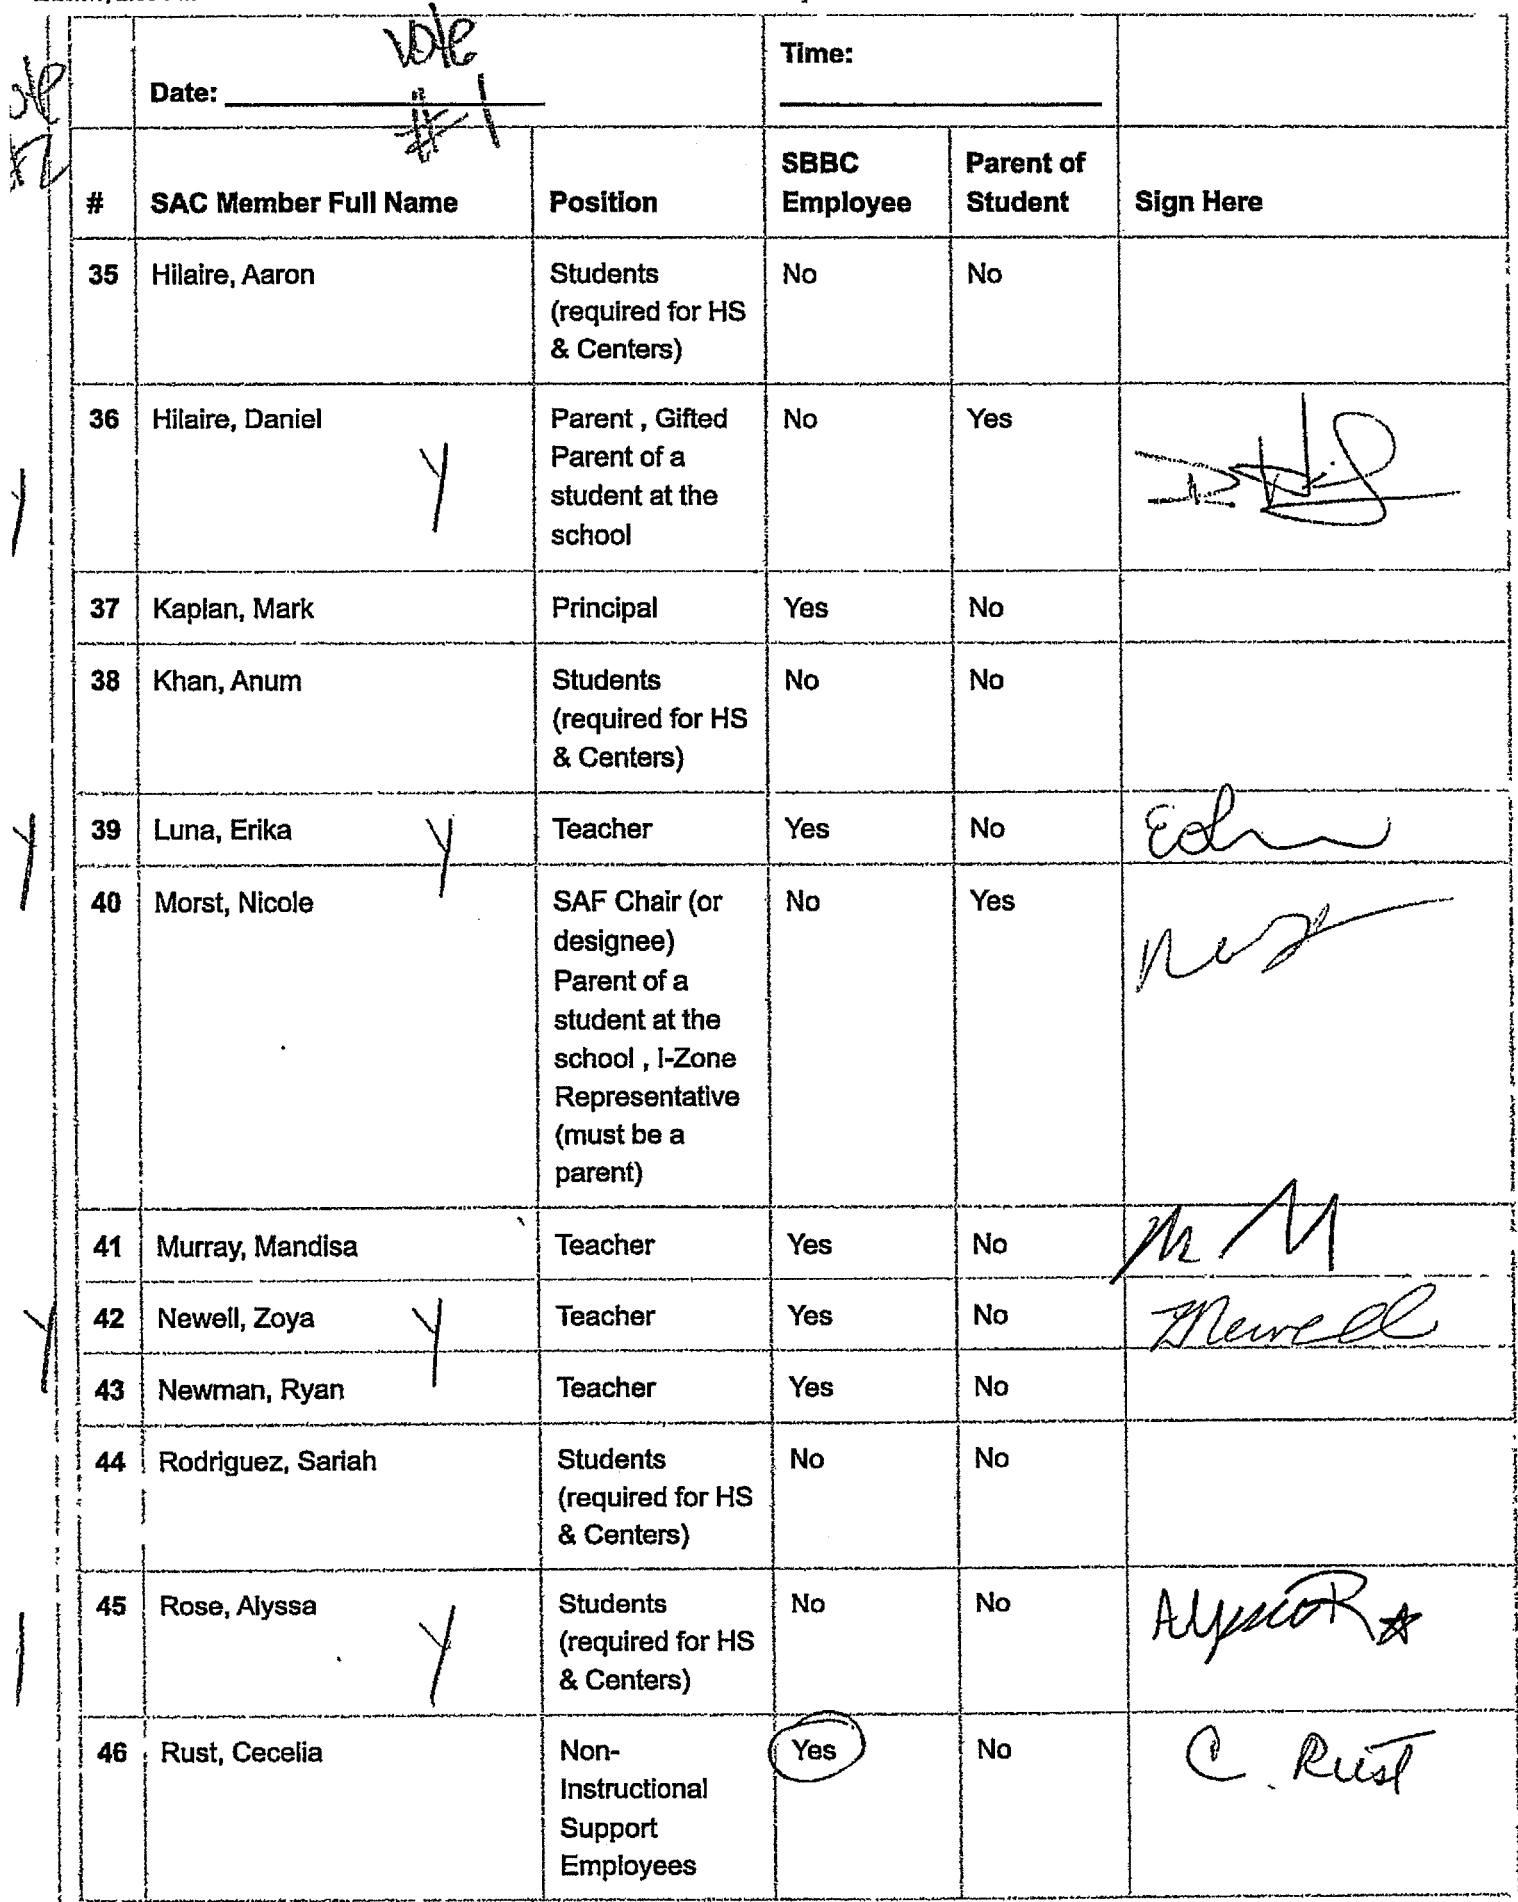 vote
#1
Date:
Time:
#
SAC Member Full Name
Position
SBBC
Employee
Parent of
Student
Sign Here
35
Hilaire, Aaron
Students
(required for HS
& Centers)
No
No
Y
36
Hilaire, Daniel
Y
Parent , Gifted
Parent of a
student at the
school
No
Yes
37
Kaplan, Mark
Principal
Yes
No
38
Khan, Anum
Students
(required for HS
& Centers)
No
No
Y
39
Luna, Erika
Y
Teacher
Yes
No
40
Morst, Nicole
SAF Chair (or
designee)
Parent of a
student at the
school , I-Zone
Representative
(must be a
parent)
No
Yes
41
Murray, Mandisa
Teacher
Yes
No
M M
Y
42
Newell, Zoya
Y
Teacher
Yes
No
ZNewell
43
Newman, Ryan
Teacher
Yes
No
44
Rodriguez, Sariah
Students
(required for HS
& Centers)
No
No
45
Rose, Alyssa
Y
Students
(required for HS
& Centers)
No
No
Alyssa R
46
Rust, Cecelia
Non-
Instructional
Support
Employees
Yes
No
C. Rust